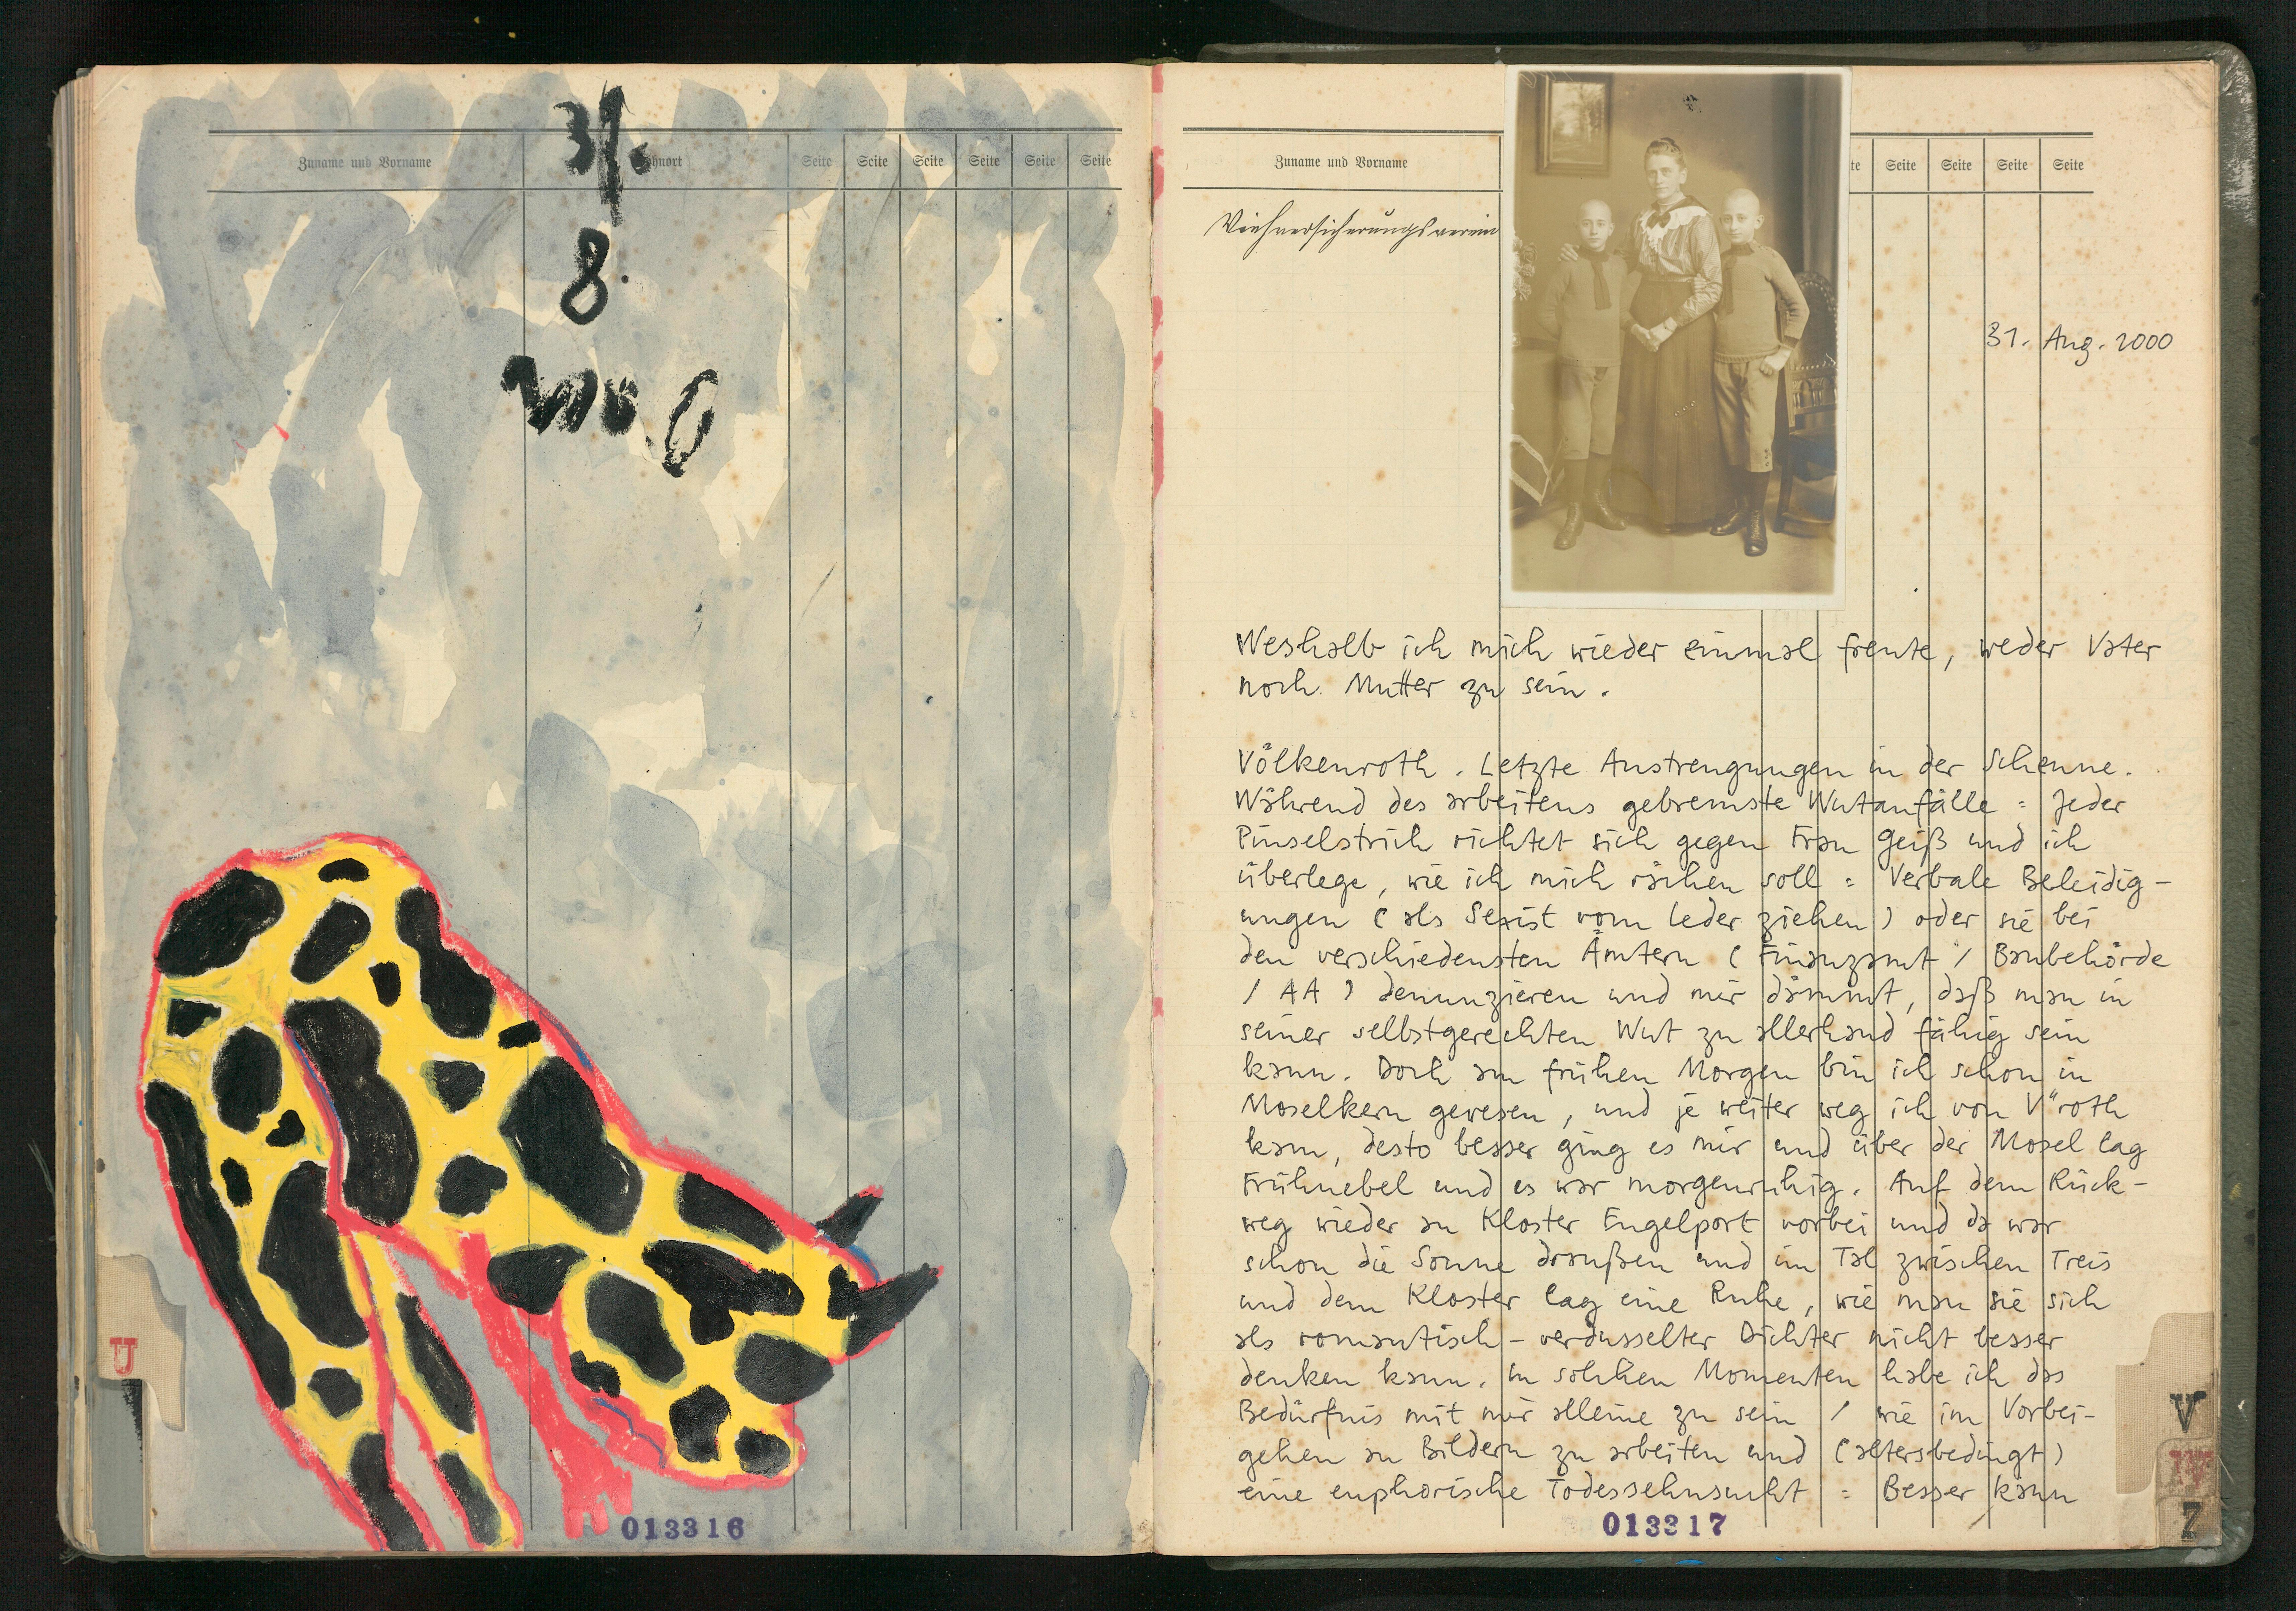 Zuname und Vorname
Seite Seite Seite Seite Seite Seite
31.
8.
U
013316
Zuname und Vorname
te Seite Seite Seite Seite
Viehversicherungsverein
31. Aug. 2000
Weshalb ich mich wieder einmal freute, weder Vater
noch Mutter zu sein.
Völkenroth. Letzte Anstrengungen in der Scheune.
Während des arbeitens gebremste Wutanfälle = Jeder
Pinselstrich richtet sich gegen Frau Geiß und ich
überlege, wie ich mich rächen soll = Verbale Beleidig-
ungen (als Sexist vom Leder ziehen) oder sie bei
den verschiedensten Ämtern (Finanzamt / Baubehörde
/ AA) denunzieren und mir dämmt, daß man in
seiner selbstgerechten Wut zu allerhand fähig sein
kann. Doch am frühen Morgen bin ich schon in
Moselkern gewesen, und je weiter weg ich von V"roth
kam, desto besser ging es mir und über der Mosel lag
Frühnebel und es war morgenruhig. Auf dem Rück-
weg wieder an Kloster Engelport vorbei und da war
schon die Sonne draußen und im Tal zwischen Treis
und dem Kloster lag eine Ruhe, wie man sie sich
als romantisch-verdusselter Dichter nicht besser
denken kann. In solchen Momenten habe ich das
Bedürfnis mit mir alleine zu sein / wie im Vorbei-
gehen an Bildern zu arbeiten und (altersbedingt)
eine euphorische Todessehnsucht = Besser kann
013317
V
Z